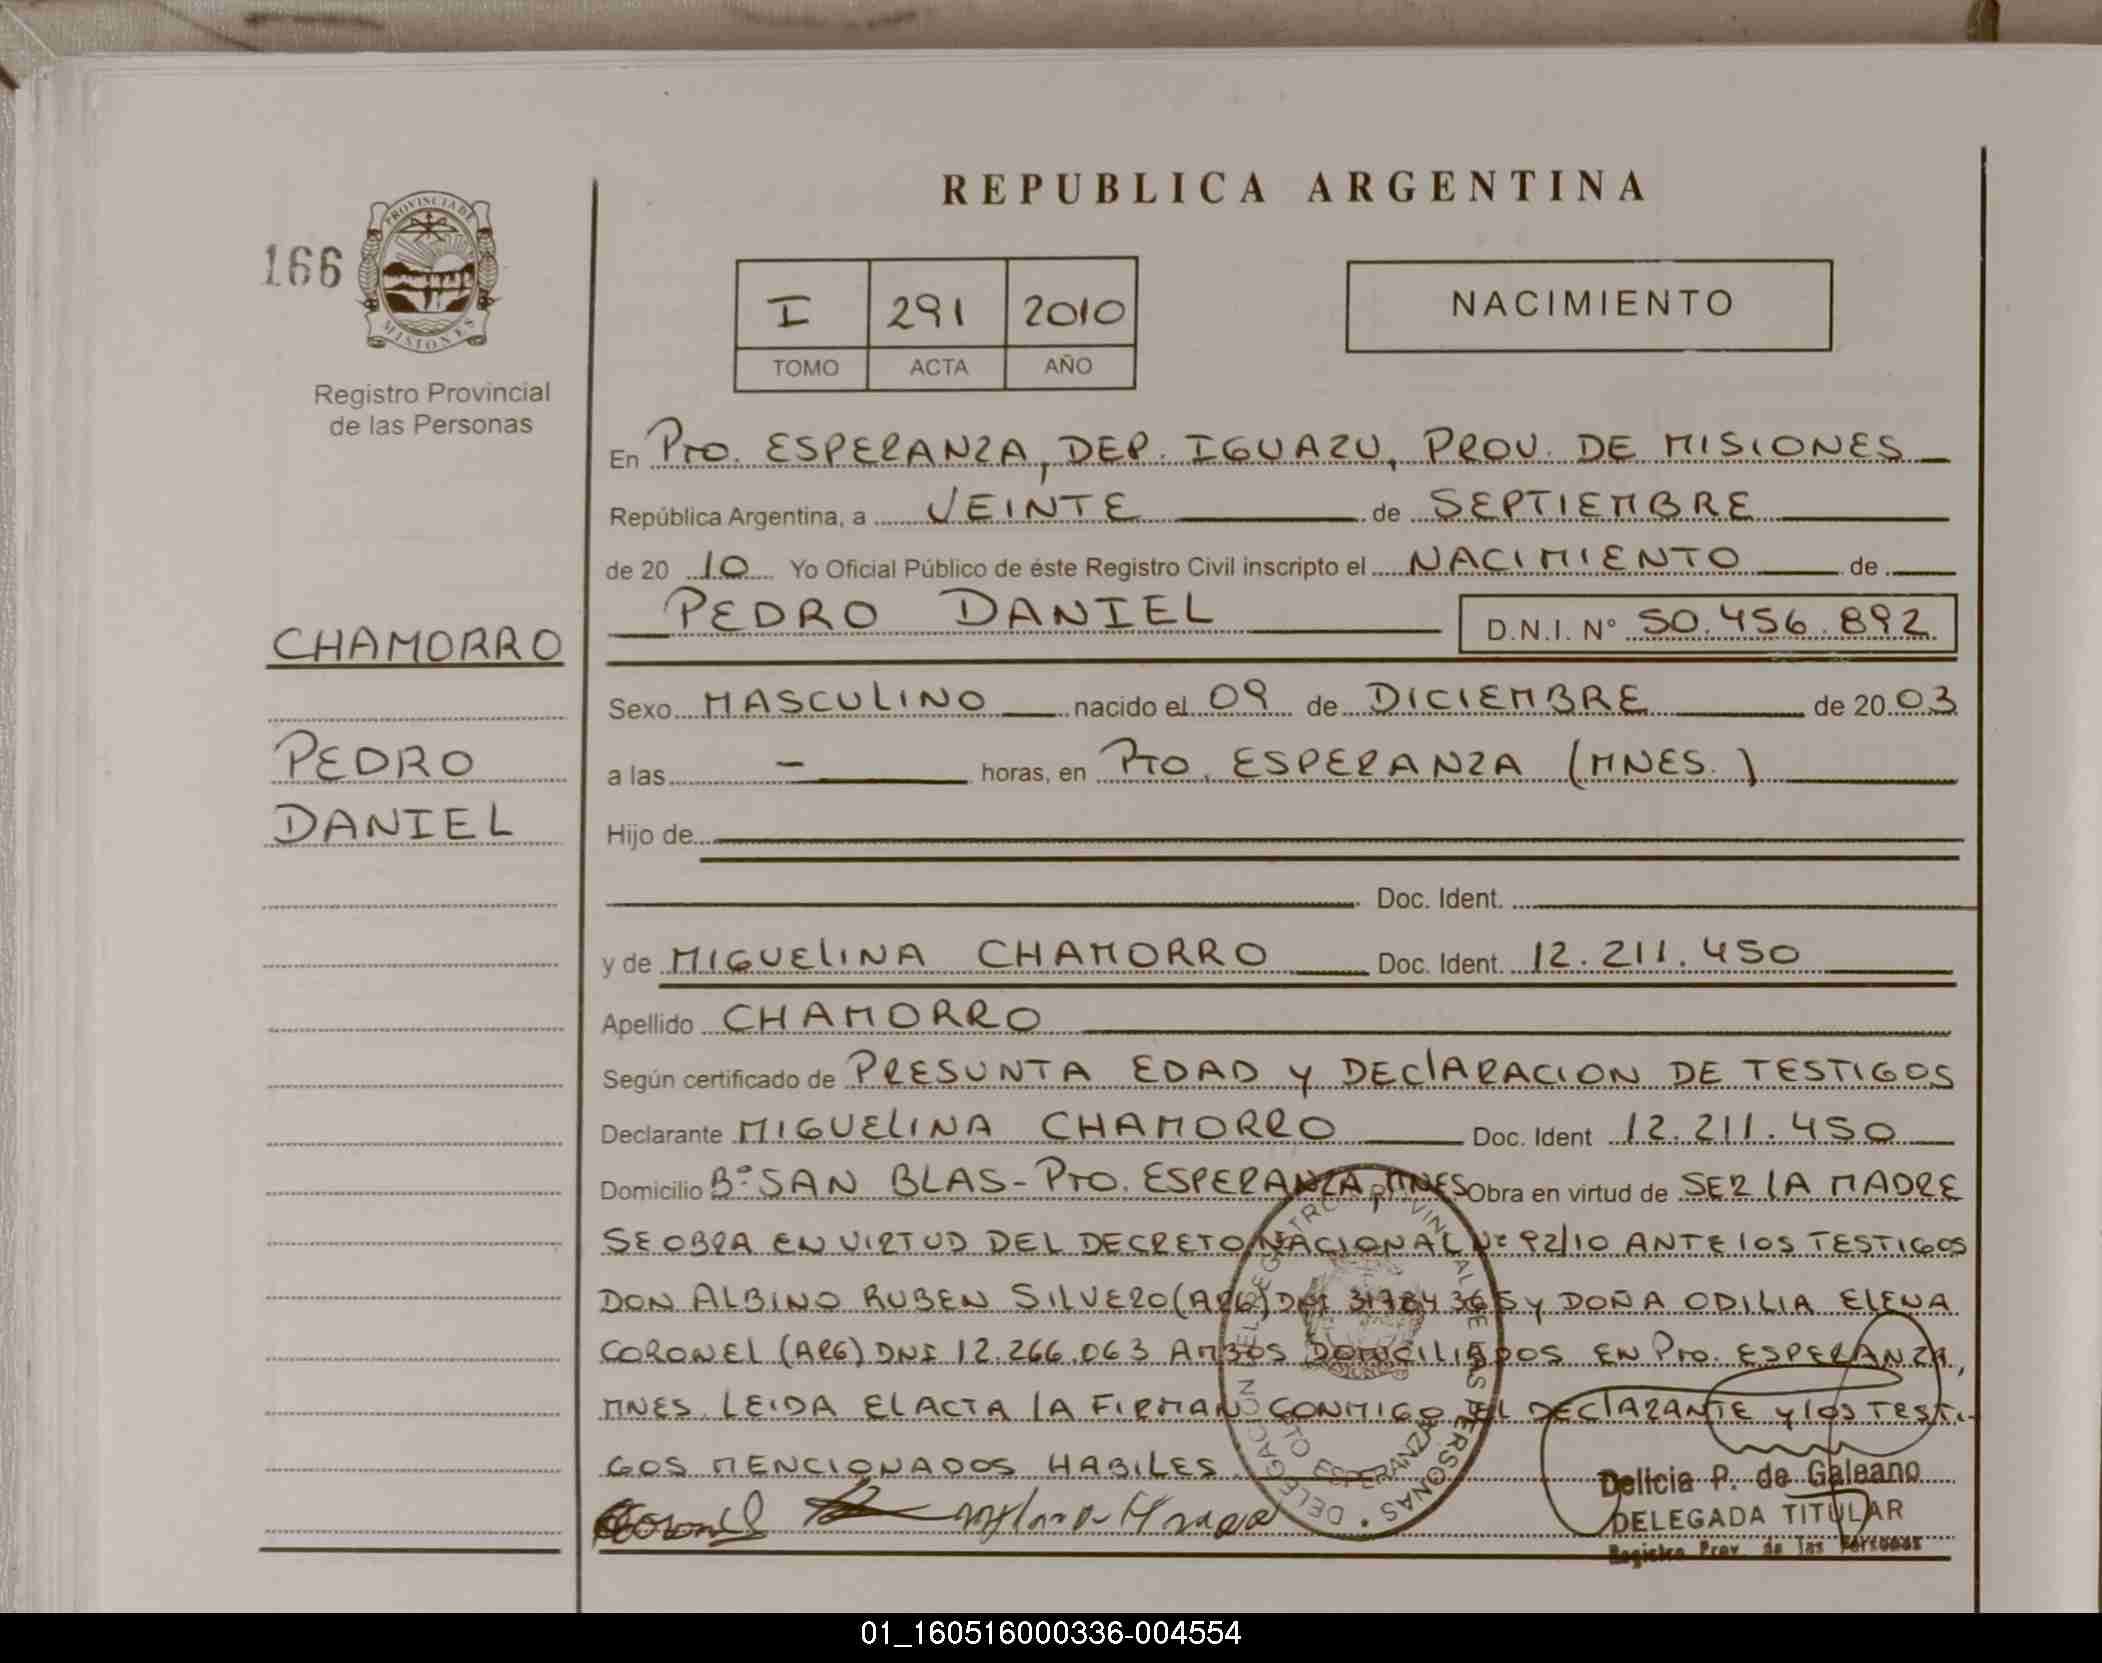 REPUBLICA ARGENTINA
166
PROVINCIA DE
MISIONES
Registro Provincial
de las Personas
I 291 2010
TOMO ACTA AÑO
NACIMIENTO
En Pto. ESPERANZA, DEP. IGUAZU, PROV. DE MISIONES
República Argentina, a VEINTE de SEPTIEMBRE
de 20 10 Yo Oficial Público de éste Registro Civil inscripto el NACIMIENTO de
PEDRO DANIEL D.N.I. N° 50.456.892
CHAMORRO
PEDRO
DANIEL
Sexo MASCULINO nacido el 09 de DICIEMBRE de 20 03
a las - horas, en Pto. ESPERANZA (MNES.)
Hijo de
Doc. Ident.
y de MIGUELINA CHAMORRO Doc. Ident. 12.211.450
Apellido CHAMORRO
Según certificado de PRESUNTA EDAD y DEClARACION DE TESTIGOS
Declarante MIGUELINA CHAMORRO Doc. Ident 12.211.450
Domicilio B° SAN BLAS - Pto. ESPERANZA, MNES Obra en virtud de SER lA MADRE
SE OBRA EN VIRTUD DEL DECRETO NACIONAL N° 92/10 ANTE lOS TESTIGOS
DON ALBINO RUBEN SILVERO (ARG) DNI y DOÑA ODILIA ELENA
CORONEL (ARG) DNI 12.266.063 AMBOS DOMICILIADOS EN Pto. ESPERANZA,
MNES. LEIDA El ACTA lA FIRMAN CONMIGO El DEClARANTE y lOS TESTI-
GOS MENCIONADOS HABILES
DELEGACION PTO ESPERANZA
REGISTRO PROVINCIAL DE LAS PERSONAS
Delicia P. de Galeano
DELEGADA TITULAR
Registro Prov. de las Personas
01_160516000336-004554